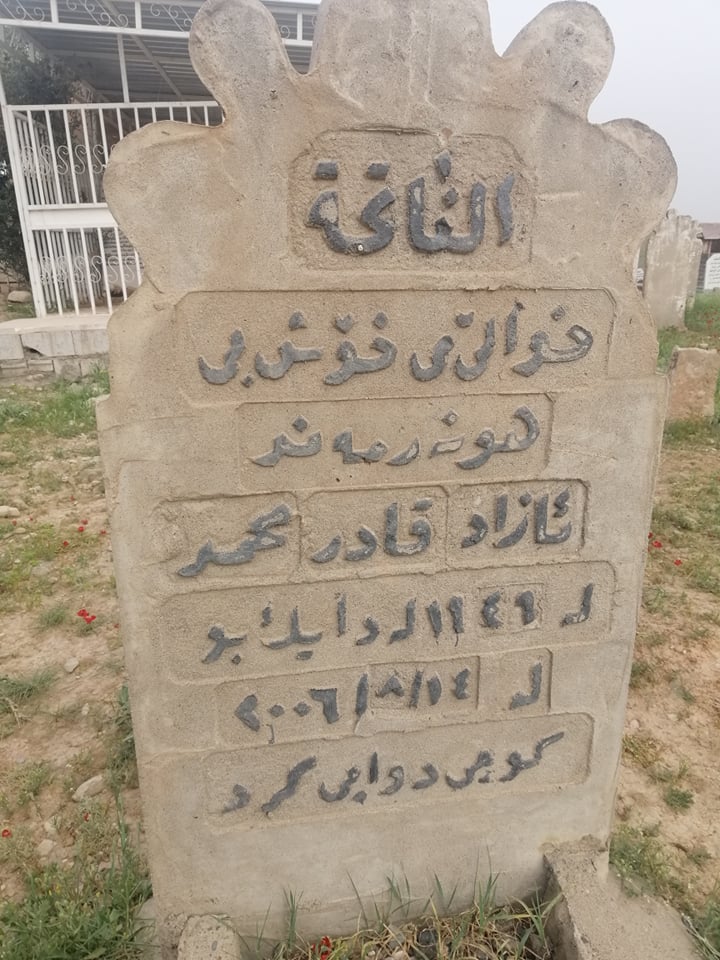 الفاتحة
خوالێی خۆش بی
هونەرمەند
ئازاد قادر محمد
لە ١٩٤٦ لەدایک بو
لە ٢٠٠٦/٨/١٤
کوچی دوایی کرد